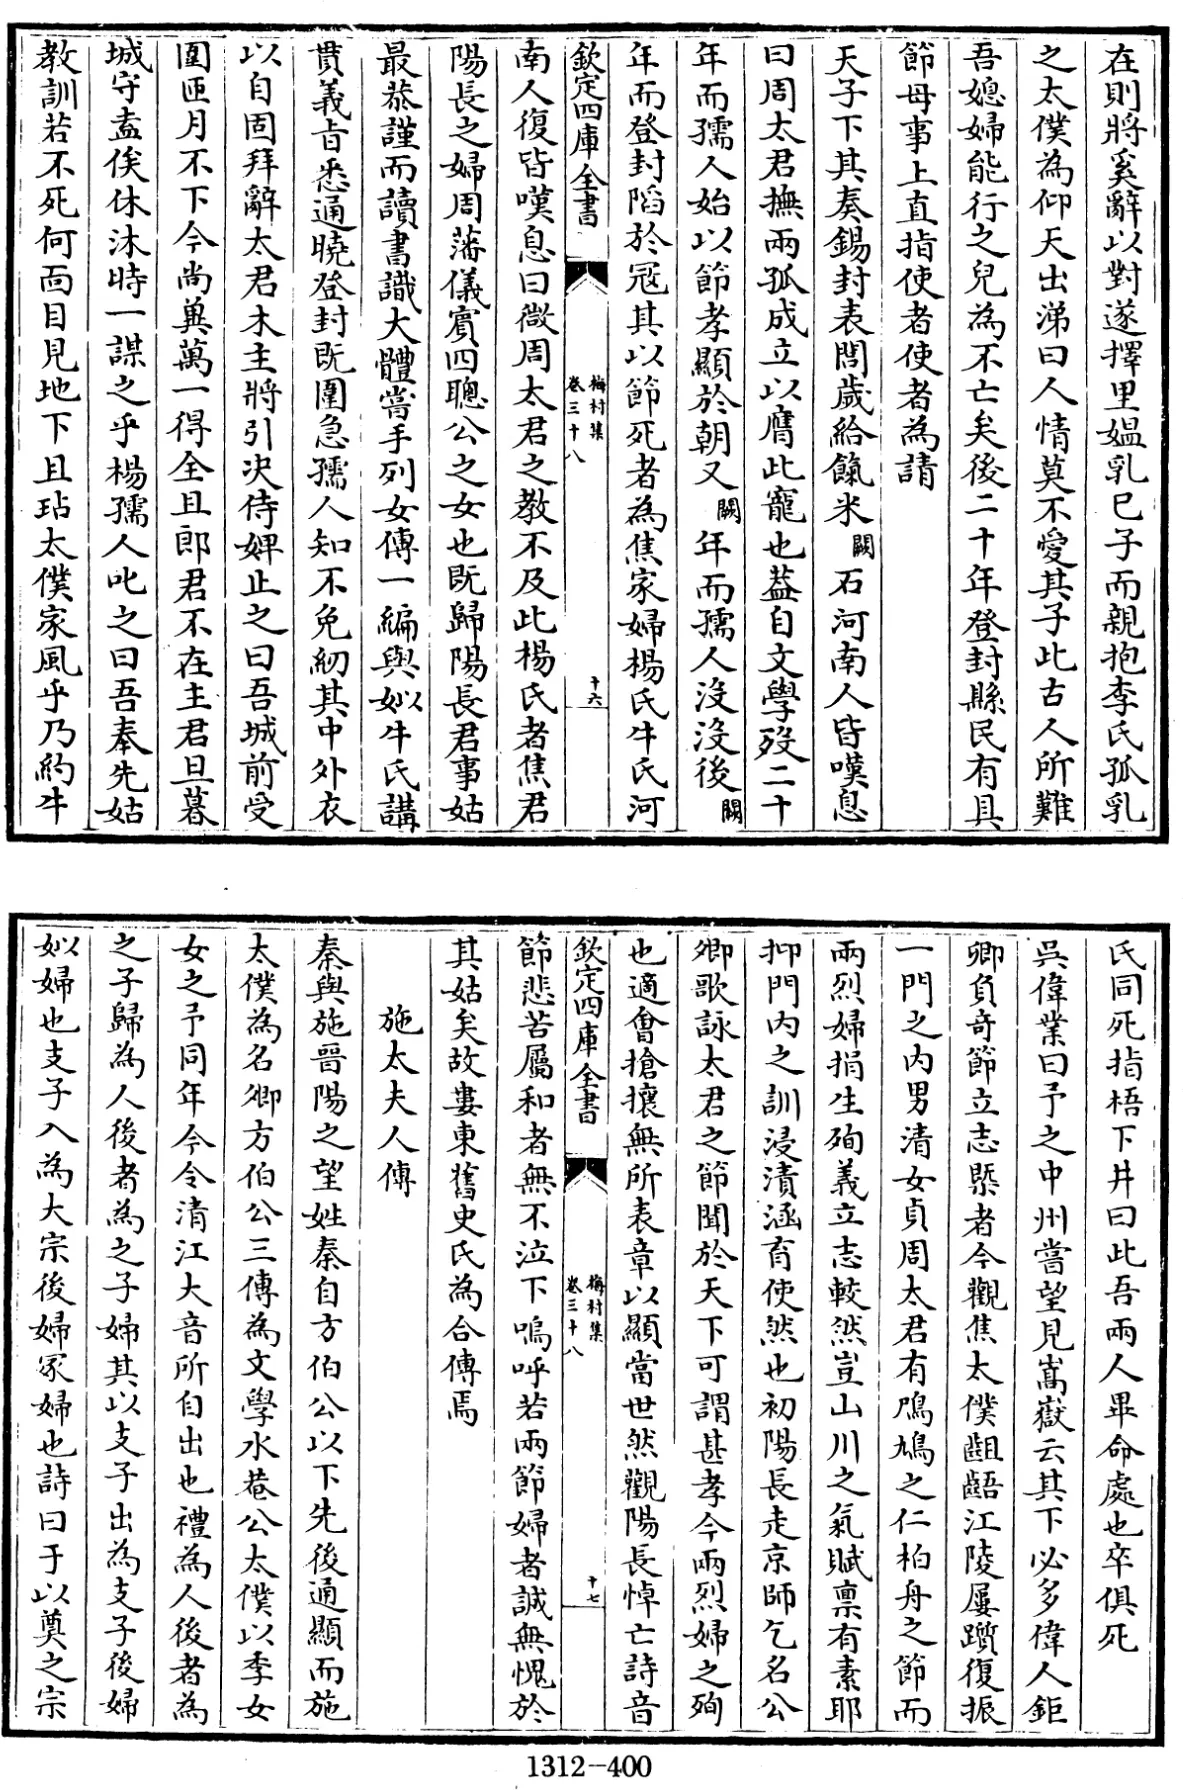 在則將奚辭以對遂擇里媼乳已子而親抱李氏孤乳
之太僕為仰天出涕曰人情莫不愛其子此古人所難
吾媳婦能行之兒為不亡矣後二十年登封縣民有具
節母事上直指使者使者為請
天子下其奏錫封表閭歲給餼米闕石河南人皆嘆息
曰周太君撫兩孤成立以膺此寵也葢自文學歿二十
年而孺人始以節孝顯於朝又闕年而孺人沒沒後闕
年而登封陷於冦其以節死者為焦家婦楊氏牛氏河
欽定四庫全書
梅村集
卷三十八
十六
南人復皆嘆息曰微周太君之教不及此楊氏者焦君
陽長之婦周藩儀賓四聰公之女也既歸陽長君事姑
最恭謹而讀書識大體嘗手列女傳一編與姒牛氏講
貫義旨悉通曉登封既圍急孺人知不免紉其中外衣
以自固拜辭太君木主將引决侍婢止之曰吾城前受
圍匝月不下今尚兾萬一得全且郎君不在主君旦暮
城守盍俟休沐時一謀之乎楊孺人叱之曰吾奉先姑
教訓若不死何面目見地下且玷太僕家風乎乃約牛
氏同死指梧下井曰此吾兩人畢命處也卒俱死
吳偉業曰予之中州嘗望見嵩嶽云其下必多偉人鉅
卿負奇節立志槩者今觀焦太僕齟齬江陵屢躓復振
一門之内男清女貞周太君有鳲鳩之仁柏舟之節而
兩烈婦捐生殉義立志較然豈山川之氣賦禀有素耶
抑門内之訓浸漬涵育使然也初陽長走京師乞名公
卿歌詠太君之節聞於天下可謂甚孝今兩烈婦之殉
也適會搶攘無所表章以顯當世然觀陽長悼亡詩音
欽定四庫全書
梅村集
卷三十八
十七
節悲苦屬和者無不泣下嗚呼若兩節婦者誠無愧於
其姑矣故婁東舊史氏為合傳焉
施太夫人傳
秦與施晉陽之望姓秦自方伯公以下先後通顯而施
太僕為名卿方伯公三傳為文學水菴公太僕以季女
女之予同年今令清江大音所自出也禮為人後者為
之子歸為人後者為之子婦其以支子出為支子後婦
姒婦也支子入為大宗後婦冢婦也詩曰于以奠之宗
1312-400